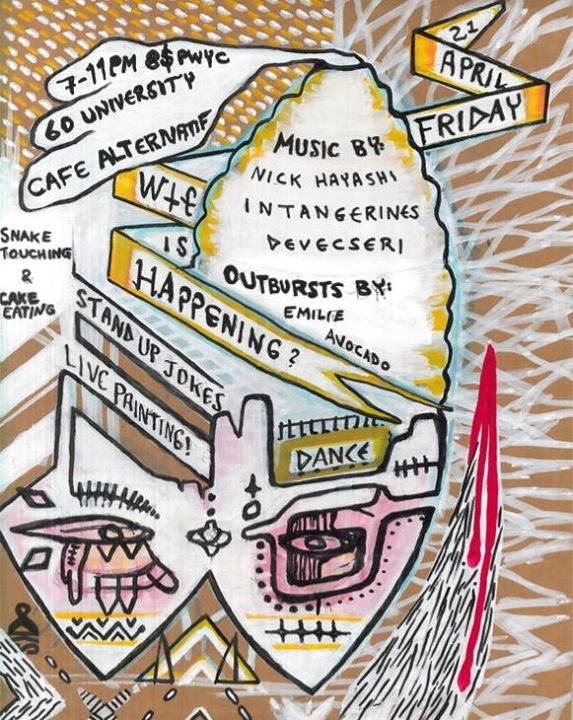 21
APRIL
FRIDAY
7-11PM 8$ PWYC
60 UNIVERSITY
CAFE ALTERNATIF
MUSIC BY:
NICK HAYASHI
INTANGERINES
DEVECSERI
OUTBURSTS BY:
EMILIE
AVOCADO
WTF
IS
HAPPENING?
SNAKE
TOUCHING
&
CAKE
EATING
STAND UP JOKES
LIVE PAINTING!
DANCE